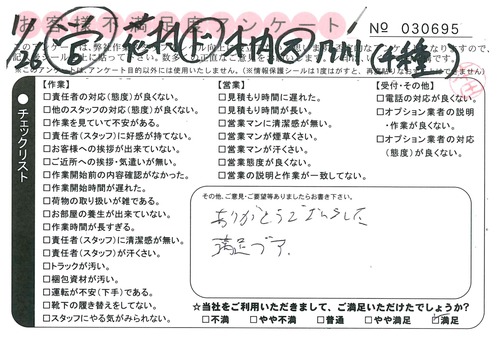 お客様不満足度アンケート
No 030695
1/26
(千種)
チェックリスト
【作業】
□責任者の対応(態度)が良くない。
□他のスタッフの対応(態度)が良くない。
□作業を見ていて不安がある。
□責任者(スタッフ)に好感が持てない。
□お客様への挨拶が出来ていない。
□ご近所への挨拶・気遣いが無い。
□作業開始前の内容確認がなかった。
□作業開始時間が遅れた。
□荷物の取り扱いが雑である。
□お部屋の養生が出来ていない。
□作業時間が長すぎる。
□責任者(スタッフ)に清潔感が無い。
□責任者(スタッフ)が汗くさい。
□トラックが汚い。
□梱包資材が汚い。
□運転が不安(下手)である。
□靴下の履き替えをしてない。
□スタッフにやる気がみられない。
【営業】
□見積もり時間に遅れた。
□見積もり時間が長い。
□営業マンに清潔感が無い。
□営業マンが煙草くさい。
□営業マンが汗くさい。
□営業態度が良くない。
□営業の説明と作業が一致してない。
【受付・その他】
□電話の対応が良くない。
□オプション業者の説明
・作業が良くない。
□オプション業者の対応
(態度)が良くない。
その他、ご意見・ご要望等ありましたらお書き下さい。
ありがとうございました
満足デス.
☆当社をご利用いただきまして、ご満足いただけたでしょうか?
□不満 □やや不満 □普通 □やや満足 □満足